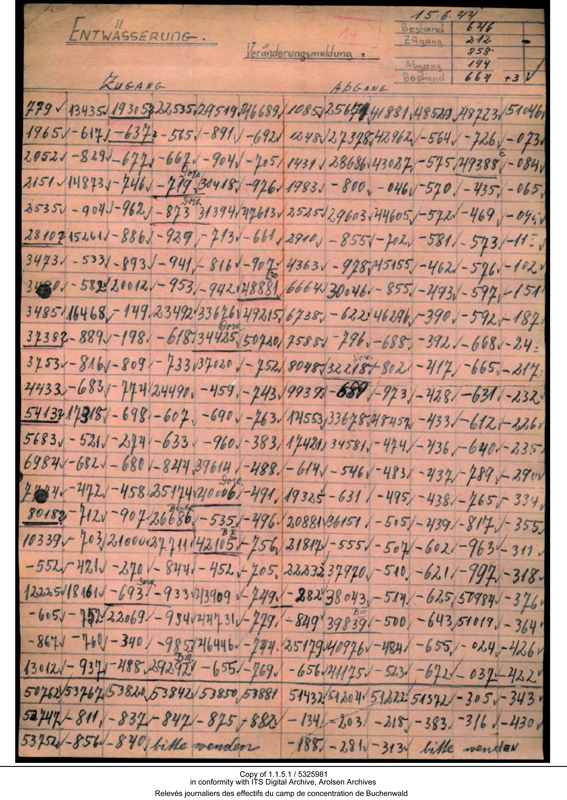 15.6.44
ENTWÄSSERUNG.
Bestand 646
Zugang 212
858
Veränderungsmeldung.
Abgang 194
Bestand 664 +3
ZUGANG ABGANG
779 13435 19305 22535 29519 46689 1085 41881 48529 48723 51046
1965 -617 -637 -565 -891 -692 1248 27378 42962 -564 -726 -073
2052 -829 -677 -667 -904 -705 1431 28686 43027 -575 49388 -084
2151 14873 -746 -719 30418 -976 1983 -800 -046 -570 -435 -065
2535 -904 -962 -873 31394 47613 2525 29603 44605 -572 -469
28107 15261 -886 -929 -713 -661 2910 -855 -702 -581 -573
3473 -533 -893 -941 -816 -907 4363 -978 45155 -462 -576 -102
-582 20012 -953 -942 48881 6664 30046 -855 -493 -597 -151
3485 16468 -149 23492 33676 49215 6738 -622 46296 -390 -592 -187
37382 -889 -198 -618 34425 50720 7588 -796 -688 -392 -668
3753 -816 -809 -733 37020 -752 8048 32218 -802 -417 -665 -217
4433 -683 -774 24490 -459 -743 9939 -689 -973 -428 -631 -232
54134 17318 -698 -607 -690 -763 14553 33678 48457 -433 -612 -226
5683 -521 -274 -633 -960 -383 17421 34581 -474 -436 -640 -235
6984 -682 -680 -844 39614 -488 -614 -546 -483 -437 -789 -290
-472 -458 25174 40006 -491 19325 -631 -495 -438 -765 -334
80182 -712 -907 26686 -535 -496 20881 36151 -505 -439 -817 -355
10339 -703 21000 27711 42105 -756 21817 -555 -507 -602 -963
-552 -421 -270 -844 -452 -705 22232 37970 -510 -621 -997 -318
12225 18161 -693 -933 43909 -749 -282 38043 -514 -625 50984 -376
-605 -757 22069 -954 44731 -779 -849 39839 -500 -643 51019 -364
-867 -760 -340 -985 46446 -744 25179 40976 -484 -655 -024 -426
13012 -937 -488 29292 -655 -769 -656 41175 -523 -672 -037 -422
50762 53767 53820 53842 53850 53881 51432 51204 51222 51372 -305 -343
52747 -811 -837 -847 -875 -882 -134 -203 -218 -383 -316 -430
53752 -856 -840 bitte wenden -188 -281 -313 bitte wenden
Copy of 1.1.5.1 / 5325981
in conformity with ITS Digital Archive, Arolsen Archives
Relevés journaliers des effectifs du camp de concentration de Buchenwald